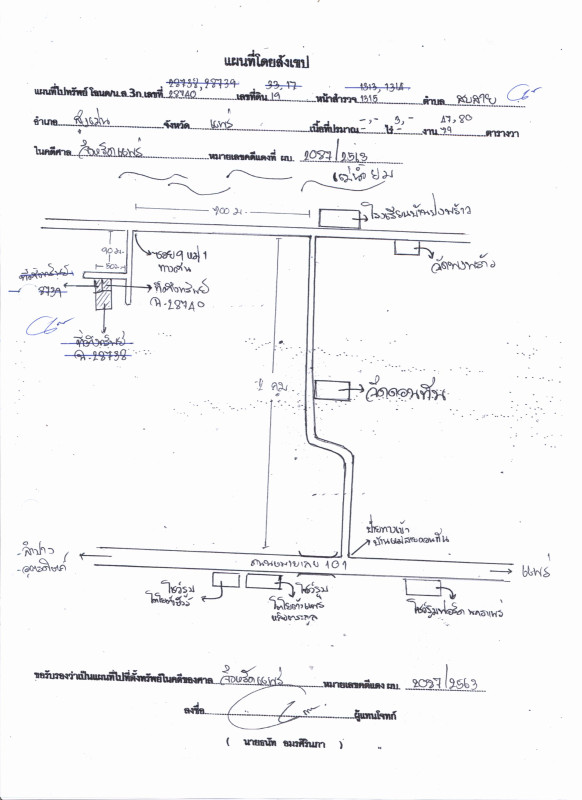 แผนที่โดยสังเขป
28738, 28739 33, 17 1313, 1314
แผนที่ไปทรัพย์ โฉนด/น.ส 3ก.เลขที่ 28740 เลขที่ดิน 19 หน้าสำรวจ 1315 ตำบล สบสาย
3,- 47, 80
อำเภอ สูงเม่น จังหวัด แพร่ เนื้อที่ประมาณ -,- ไร่ -,- งาน 49 ตารางวา
ในคดีศาล จังหวัดแพร่ หมายเลขคดีแดงที่ ผบ. 2087/2563
แม่น้ำยม
400 ม.
โรงเรียนบ้านพงพร้าว
วัดพงพร้าว
90 ม
50 ม
ซอย 9 หมู่ 1
ทางดิน
ที่ตั้งทรัพย์
8739
ที่ตั้งทรัพย์
ฉ.28740
ที่ตั้งทรัพย์
ฉ.28738
2 กม
วัดดอนทัน
ป้ายทางเข้า
ลำปาง
อุตรดิตถ์
ถนนหมายเลข 101
แพร่
โชว์รูม
โชว์รูม
โตโยต้าแพร่
ขอรับรองว่าเป็นแผนที่ไปที่ตั้งทรัพย์ในคดีของศาล จังหวัดแพร่ หมายเลขคดีแดง ผบ. 2087/2563
ลงชื่อ ผู้แทนโจทก์
( นายธนัท อมรศิรินภา )